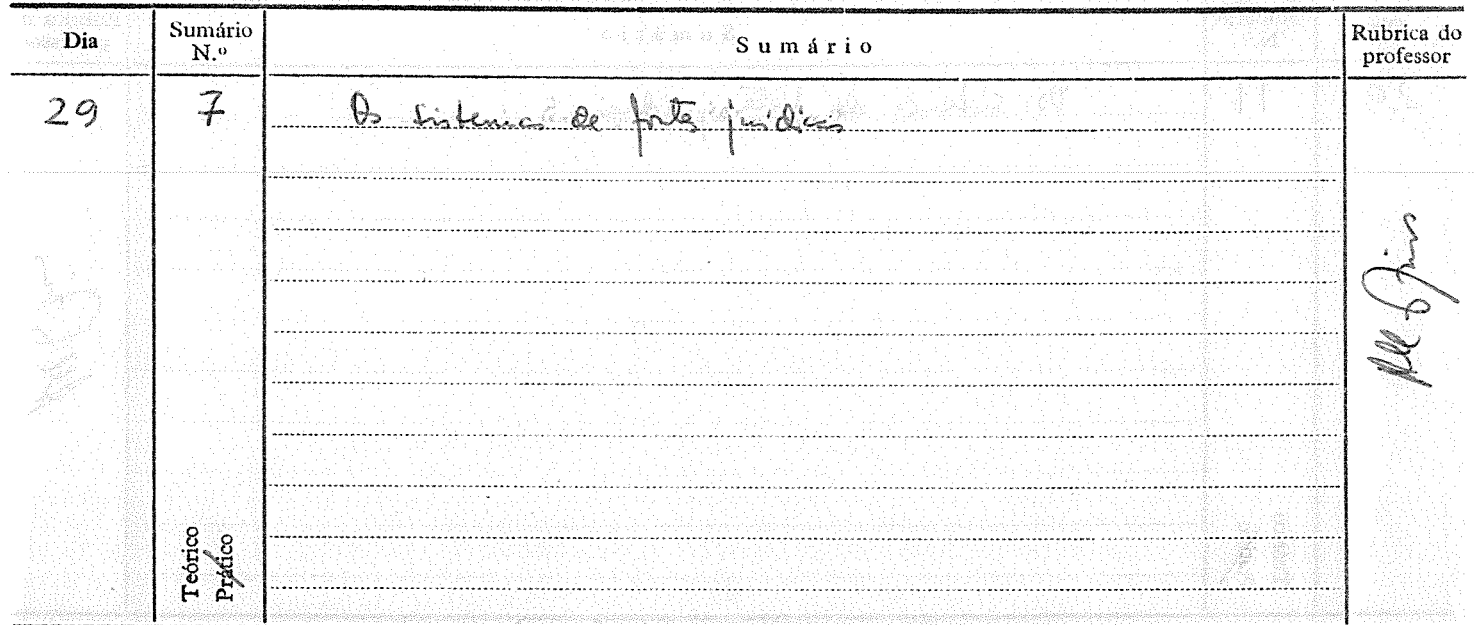 Dia
Sumário
N.º
Sumário
Rubrica do
professor
29
7
Os sistemas de fontes jurídicas
Teórico
Prático